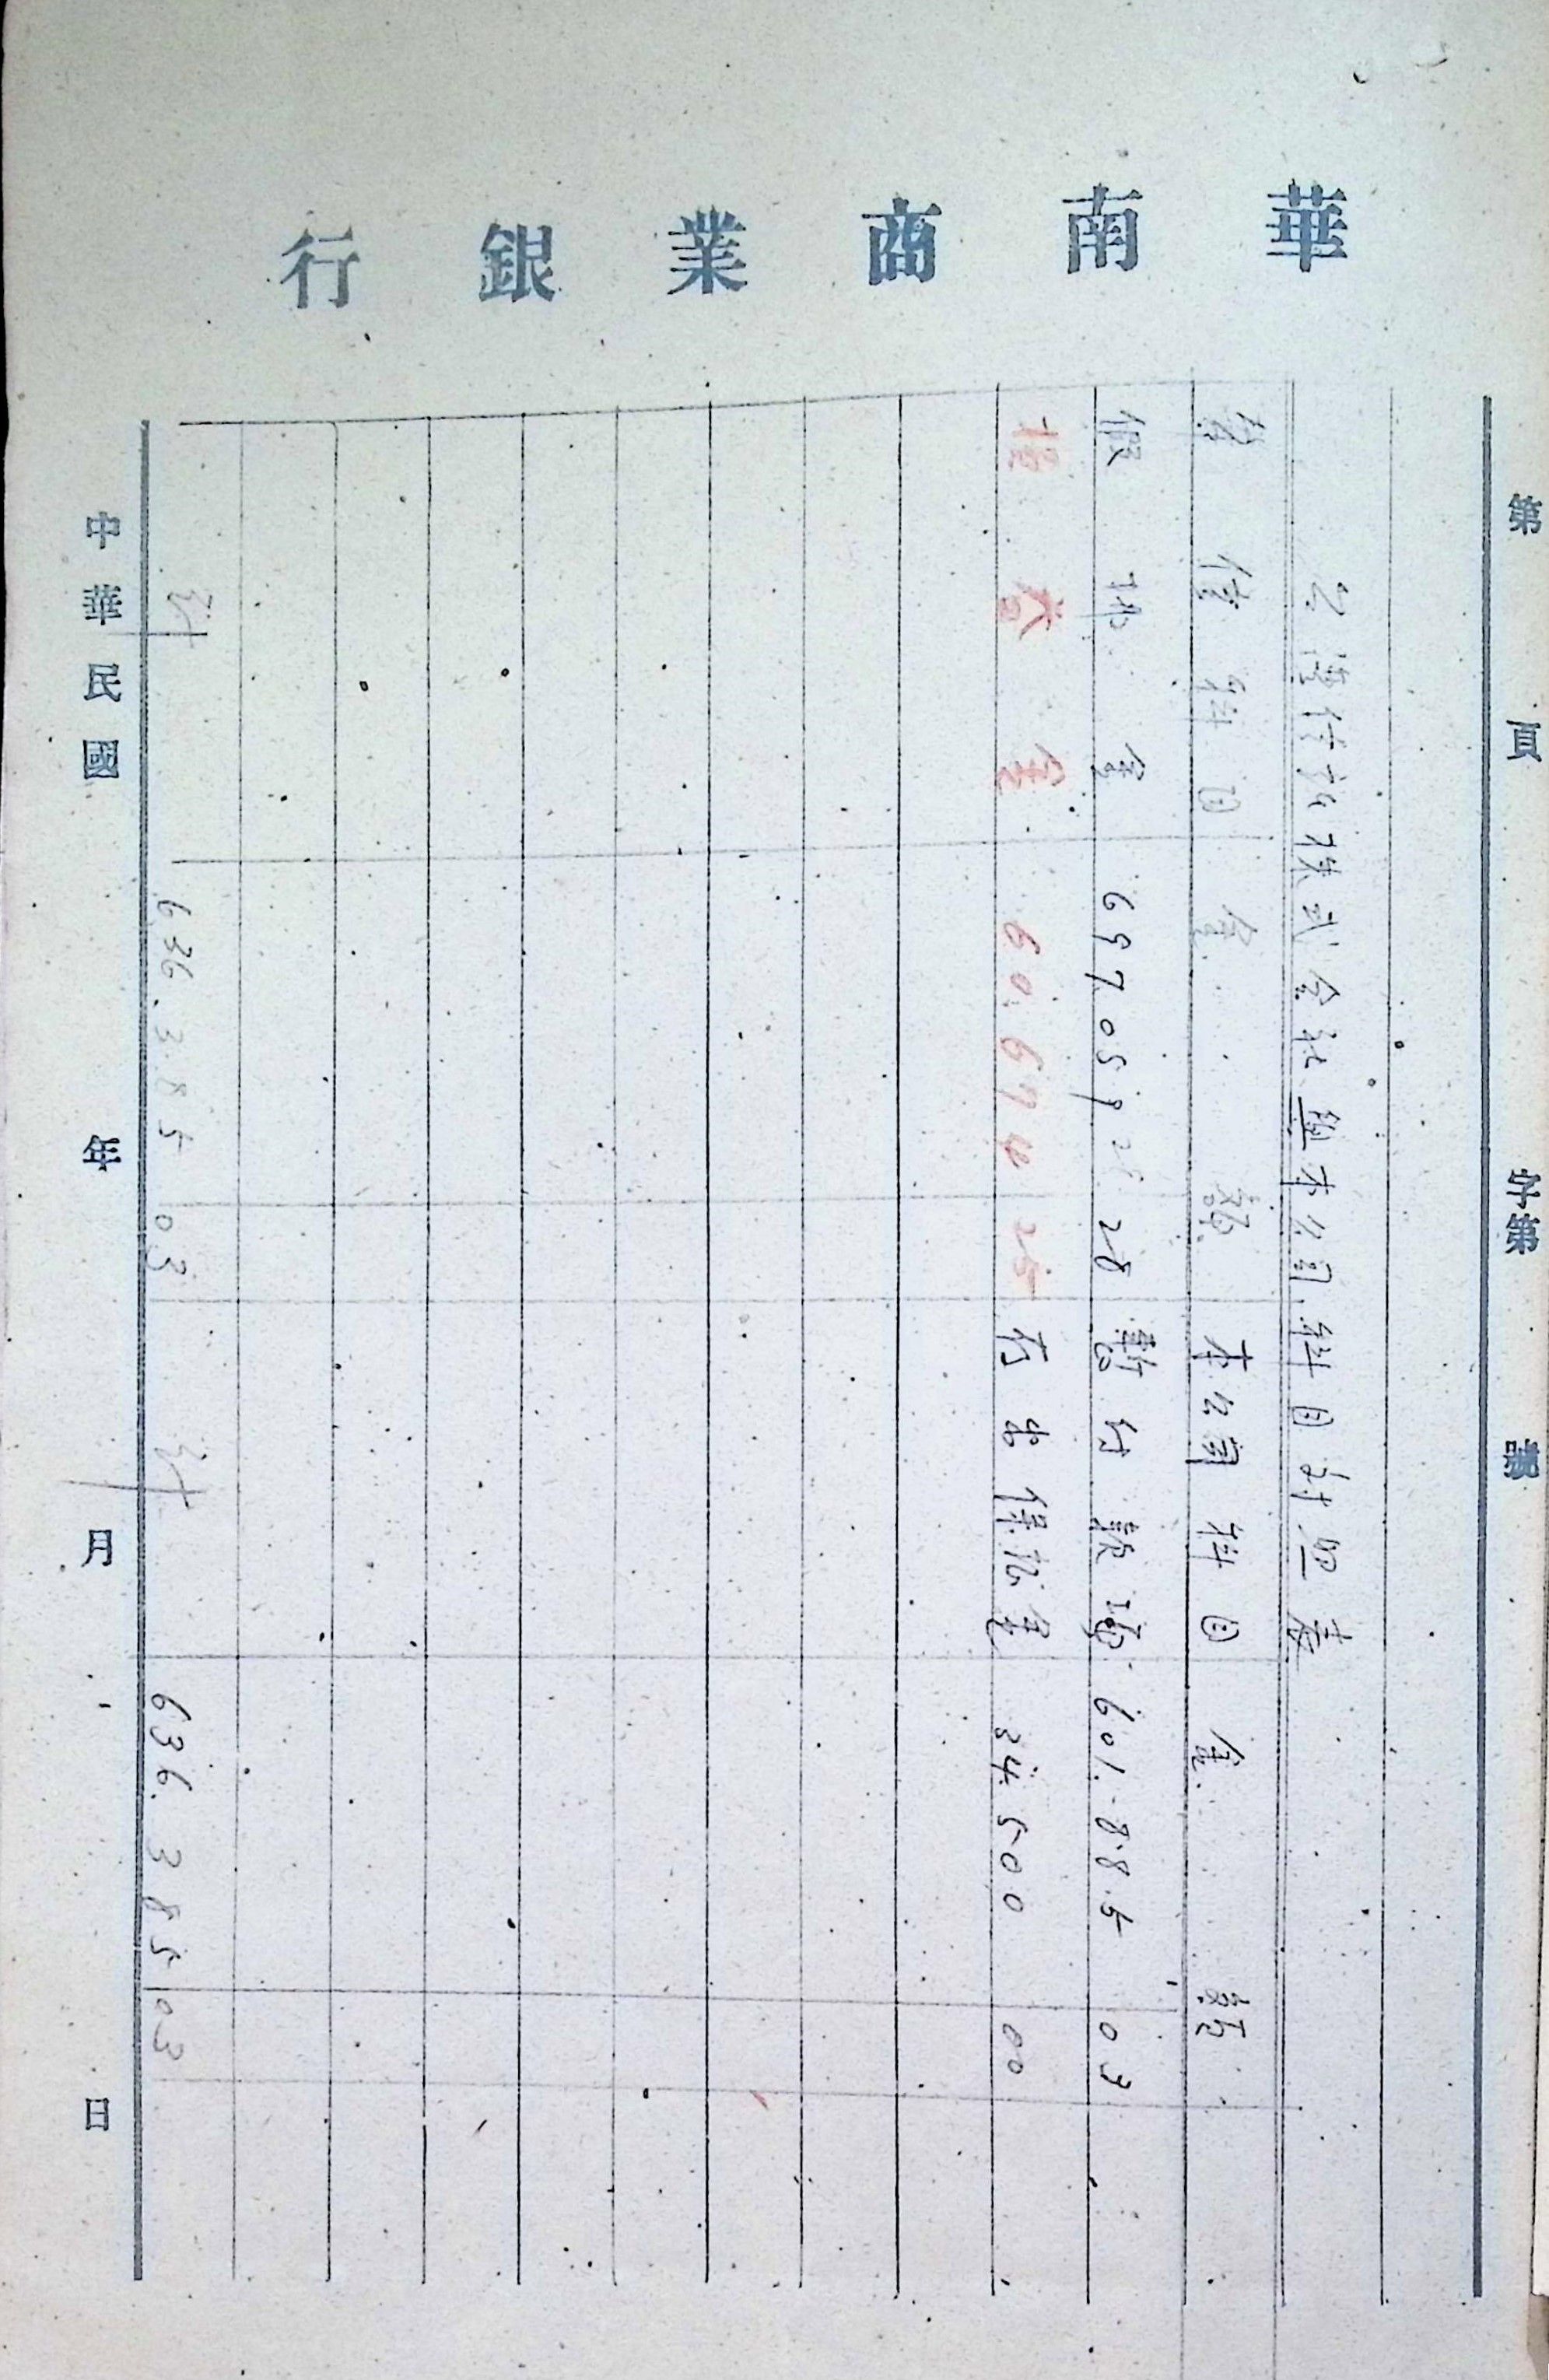 華南商業銀行
第 頁 字第 號
台灣信託株式会社與本公司科目対照表
台信科目 金額 本公司科目 金額
假拂金 697059 28 暫付款項 601.885 03
益金 60.674 25 存出保証金 34.500 00
計 636.385 03 計 636.385 03
中華民國 年 月 日